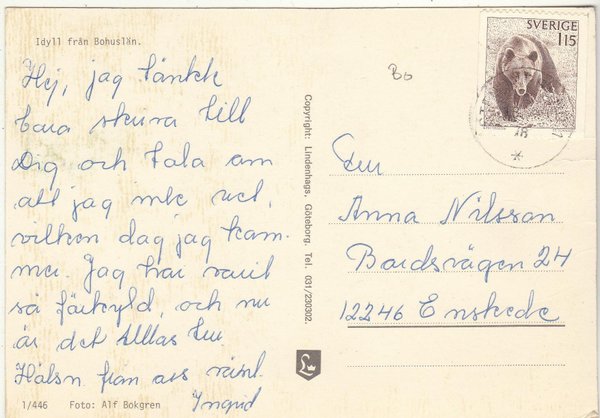 Idyll från Bohuslän.
Hej, jag tänkte
bara skriva till
Dig och tala om
att jag inte vet,
vilken dag jag kom-
mer. Jag har varit
så förkyld, och nu
är det Ullas tur
Hälsn från oss
Ingrid
1/446 Foto: Alf Bokgren
Copyright: Lindenhags, Göteborg. Tel. 031/230302.
Bo
SVERIGE
115
Fru
Anna Nilsson
Bardsvägen 24
12246 Enskede